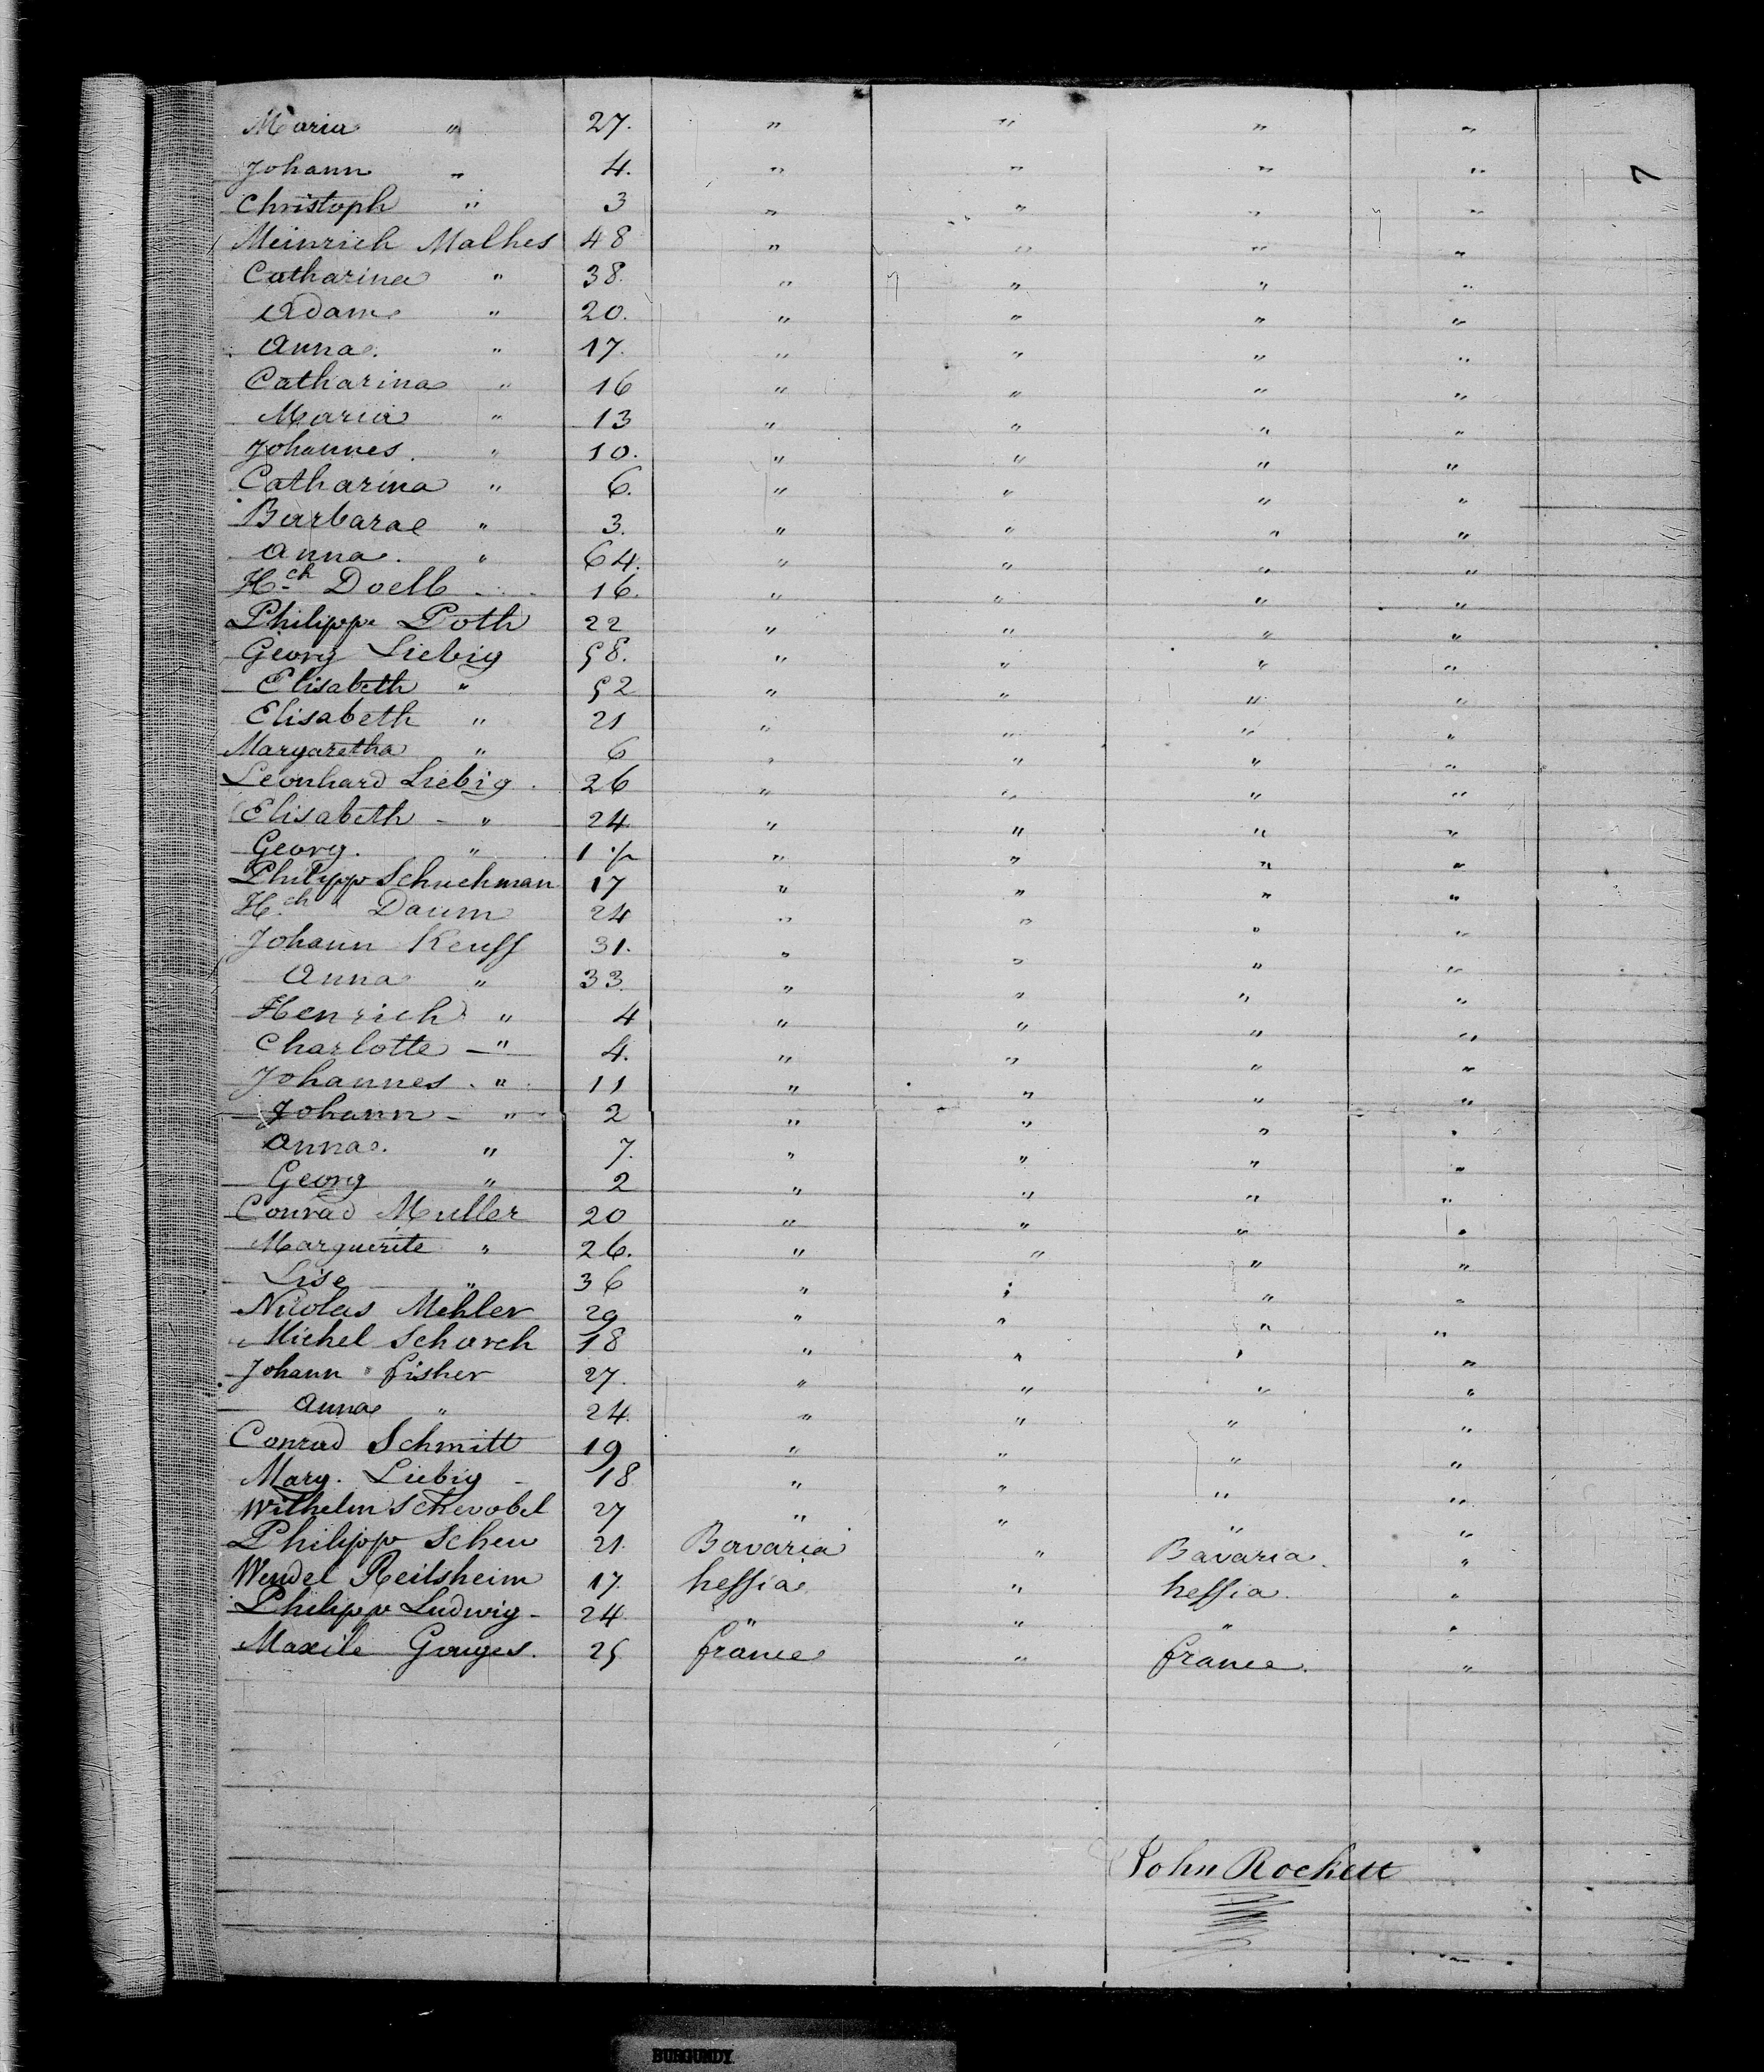 Maria " 27. " " " "
Johann " 4. " " " "
Christoph " 3 " " " "
Meinrich Malhes 48 " " " "
Catharina " 38. " " " "
Adam " 20. " " " "
Anna. " 17. " " " "
Catharina " 16 " " " "
Maria " 13 " " " "
Johannes. " 10. " " " "
Catharina " 6. " " " "
Barbara " 3. " " " "
Anna. " 64. " " " "
Hch Doell 16. " " " "
Philipp Poth 22 " " " "
Georg Liebig 58. " " " "
Elisabeth " 52 " " " "
Elisabeth " 21 " " " "
Margaretha " 6 " " " "
Leonhard Liebig. 26 " " " "
Elisabeth - " 24 " " " "
Georg. " 1 " " " "
Philipp Schuchman 17 " " " "
Hch Daum 24 " " " "
Johann Keuff 31. " " " "
Anna " 33. " " " "
Henrich " 4 " " " "
Charlotte - " 4. " " " "
Johannes. " 11 " " " "
Johann - " 2 " " " "
Anna. " 7. " " " "
Georg " 2 " " " "
Conrad Muller 20 " " " "
Marguerite " 26. " " " "
Lise " 36 " " " "
Nicolas Mehler 29 " " " "
Michel Schorch 18 " " " "
Johann fisher 27. " " " "
Anna " 24. " " " "
Conrad Schmitt 19 " " " "
Marg. Liebig - 18 " " " "
Wilhelm 27 " " " "
Philipp Scheu 21. Bavaria " Bavaria. "
Wendel Reilsheim 17. hessia " hessia. "
Philipp Ludwig - 24. " " " "
Maxile Gouges. 25 france " france. "
John Rockett
BURGUNDY